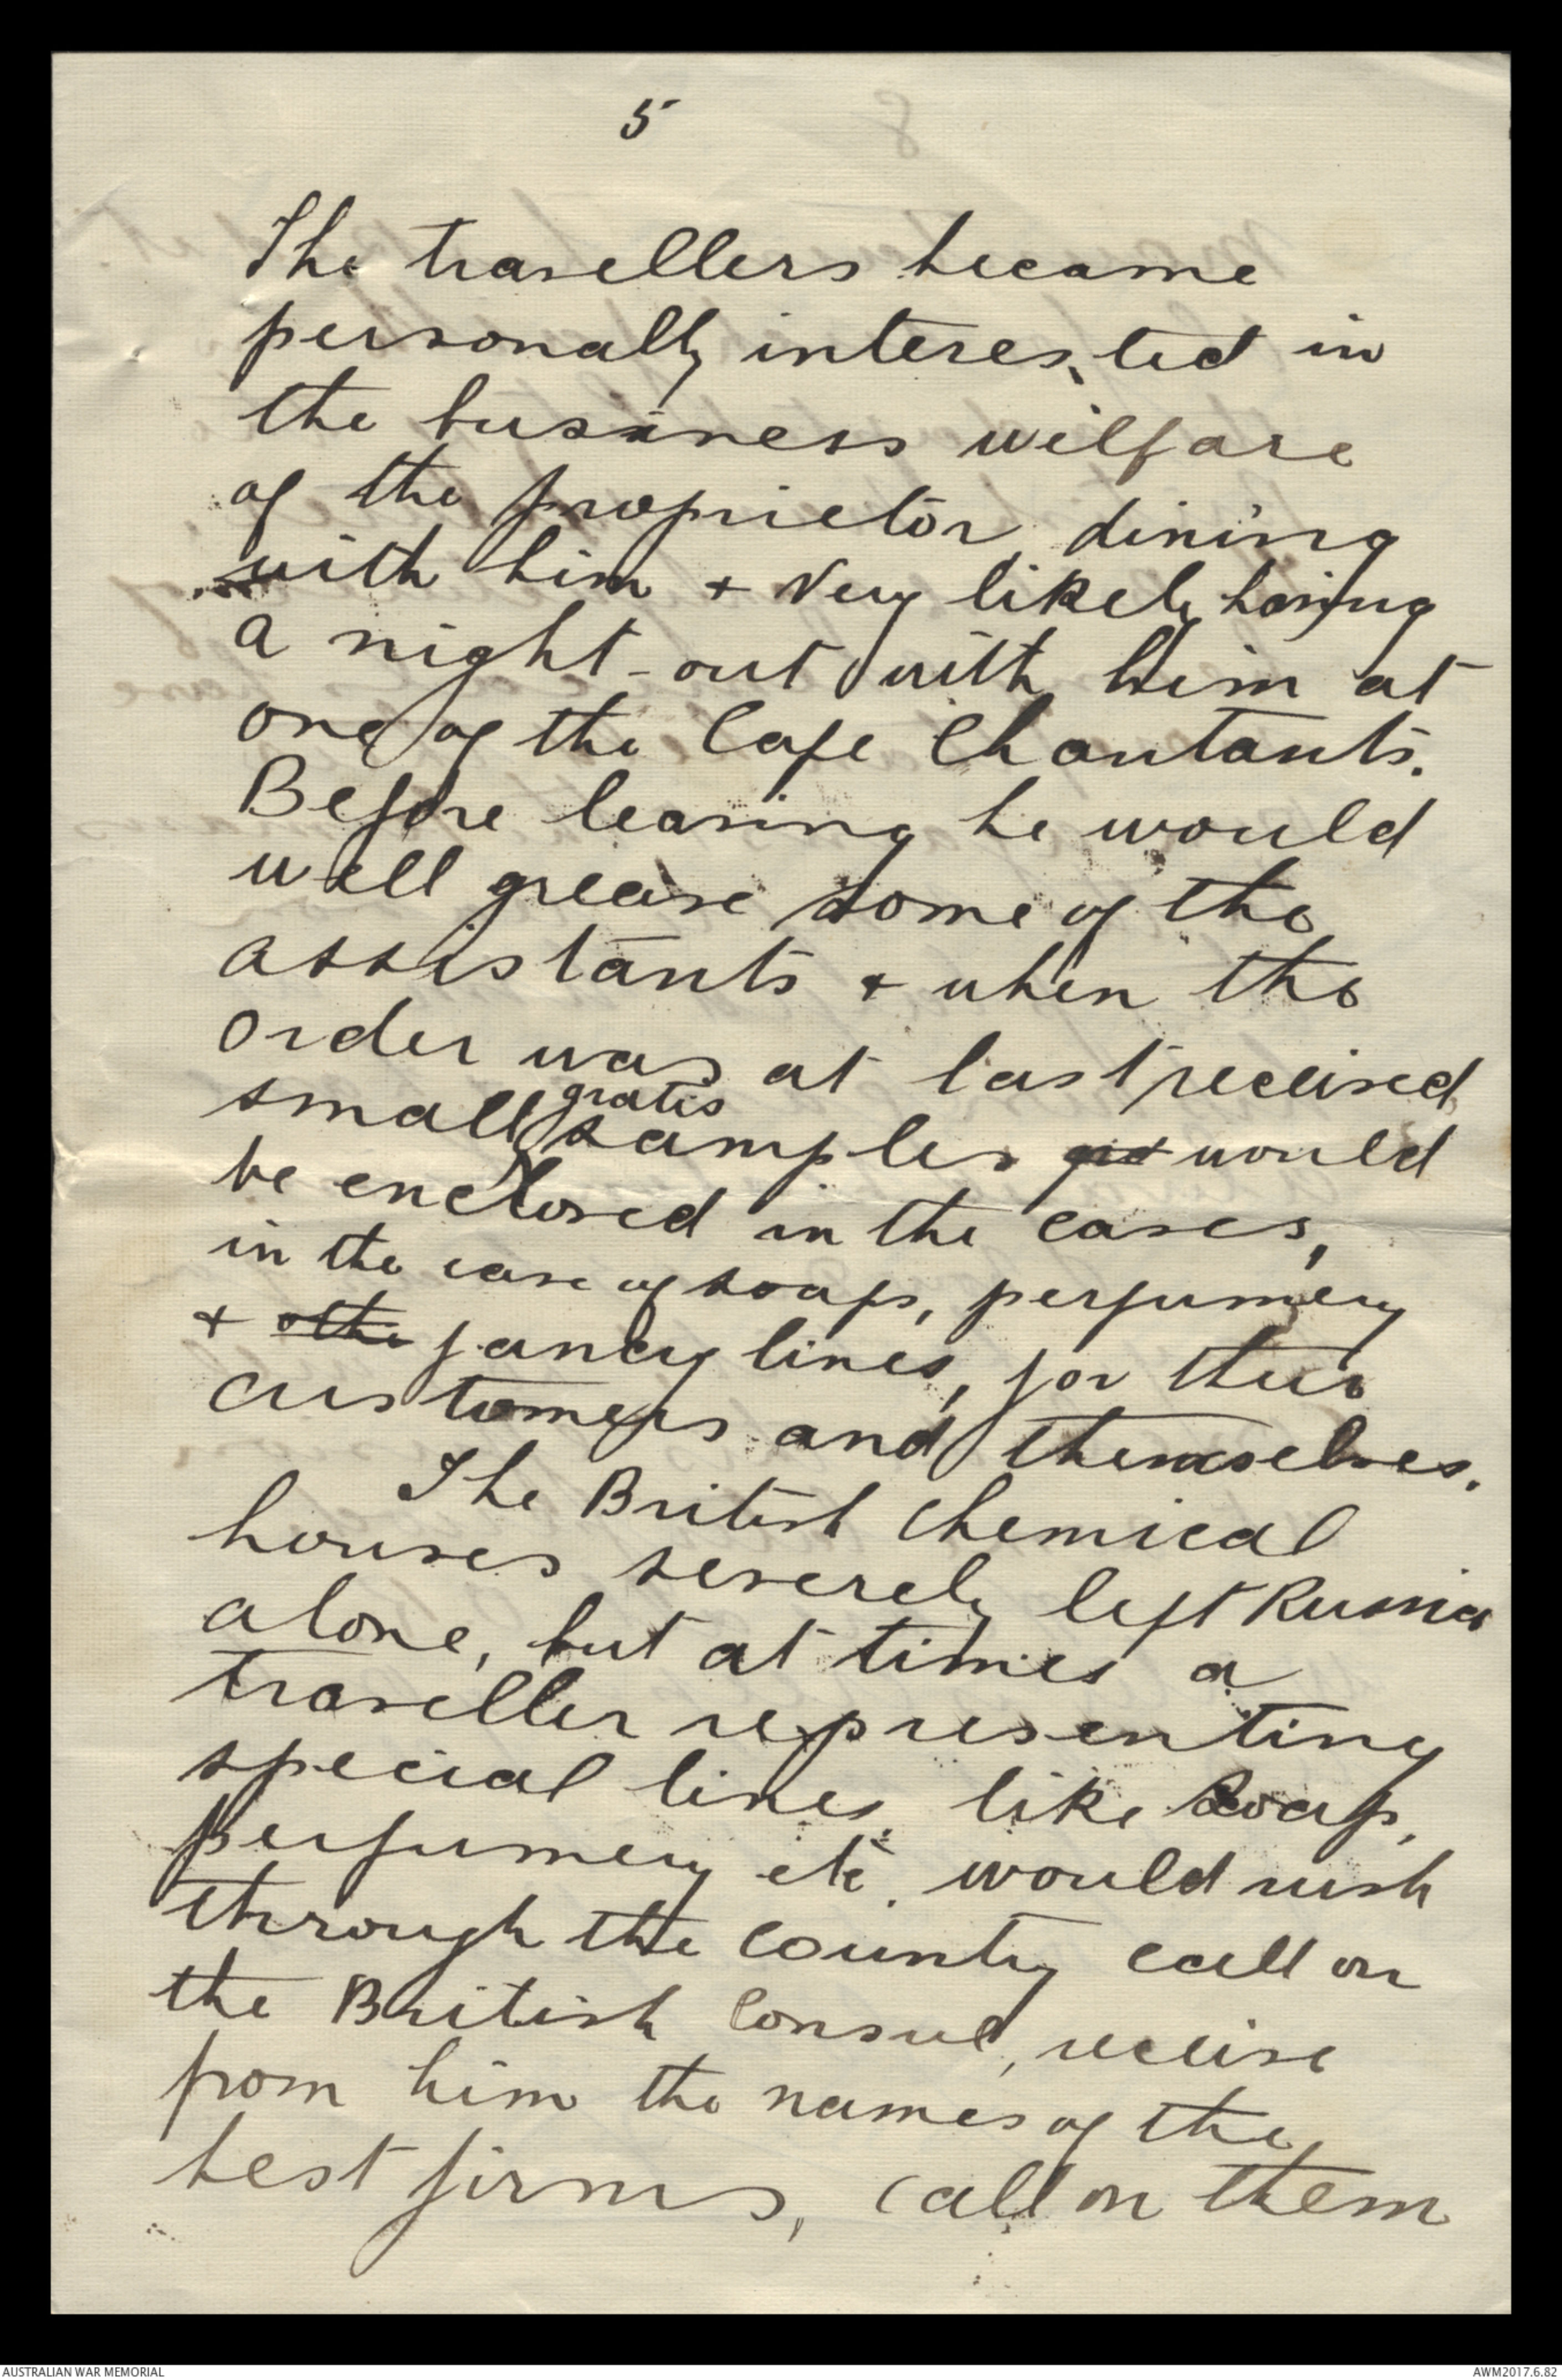 5
The travellers became
personally interested in
the business wilfare
of the proprietor, dining
with him + very likely having
a night-out with him at
one of the Cafe Chantants.
Before leaving he would
well grease some of the
assistants + when the
order was at last received
small gratis samples would
be enclosed in the cases,
in the case of soaps, perfumery
+ othe fancy lines, for their
customers and themselves.
The British Chemical
houses severely left Russia
alone, but at times a
traveller representing
special lines, like soap,
perfumery etc. would rush
through the country call on
the British Consul, receive
from him the names of the
best firms, call on them
AUSTRALIAN WAR MEMORIAL
AWM2017.6.82